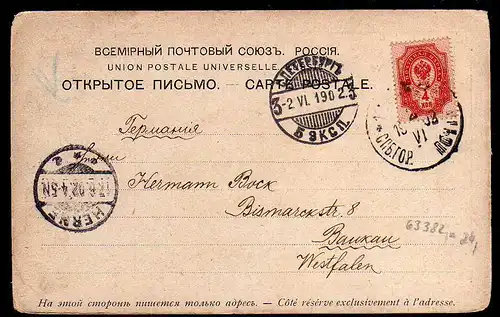 ВСЕМІРНЫЙ ПОЧТОВЫЙ СОЮЗЪ. РОССІЯ.
UNION POSTALE UNIVERSELLE.
ОТКРЫТОЕ ПИСЬМО. — CARTE POSTALE.
С.ПЕТЕРБУРГЪ
-2 VI. 1902
5 ЭКСП.
4 КОП
VI
СПБ.ГОР.
Германия
Herrn
Hermann Bock
Bismarckstr. 8
Baukau
Westfalen
HERNE
4-5N
63382
На этой сторонѣ пишется только адресъ. — Côté réservé exclusivement à l'adresse.